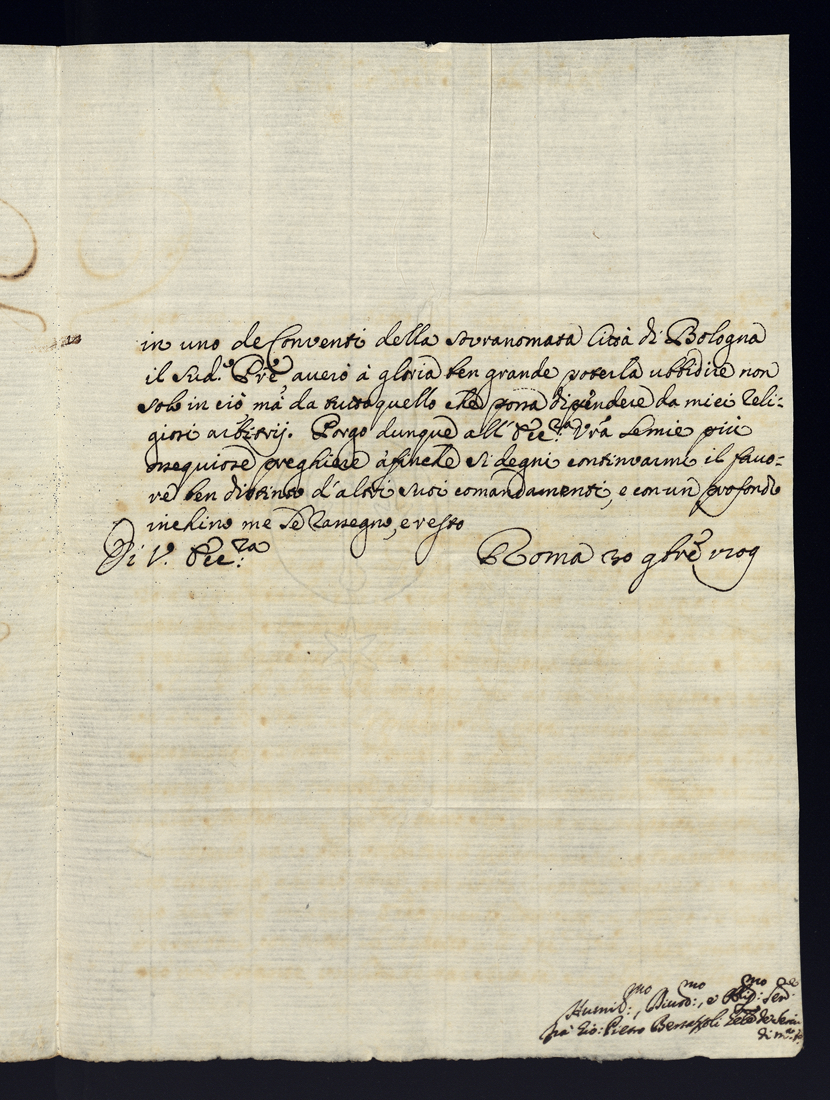 in uno de Conventi della sovranomata Città di Bologna
il sud.º Prē, averò à gloria ben grande poterla ubbidire non
solo in ciò mà da tutto quello che potrà dipendere da miei reli-
giosi arbitrij. Porgo dunque all' Ecc.za Vrã le mie più
ossequiose preghiere àfinche si degni continuarmi il favo-
re ben distinto d'altri suoi comandamenti, e con un profondo
inchino me Le rassegno, e resto
Di V. Ecc.za Roma 30 gbrē 1709
Humil.mo, Divot.mo, e Obbg.mo Ser.re
frà Gio: Pietro Bertazzoli